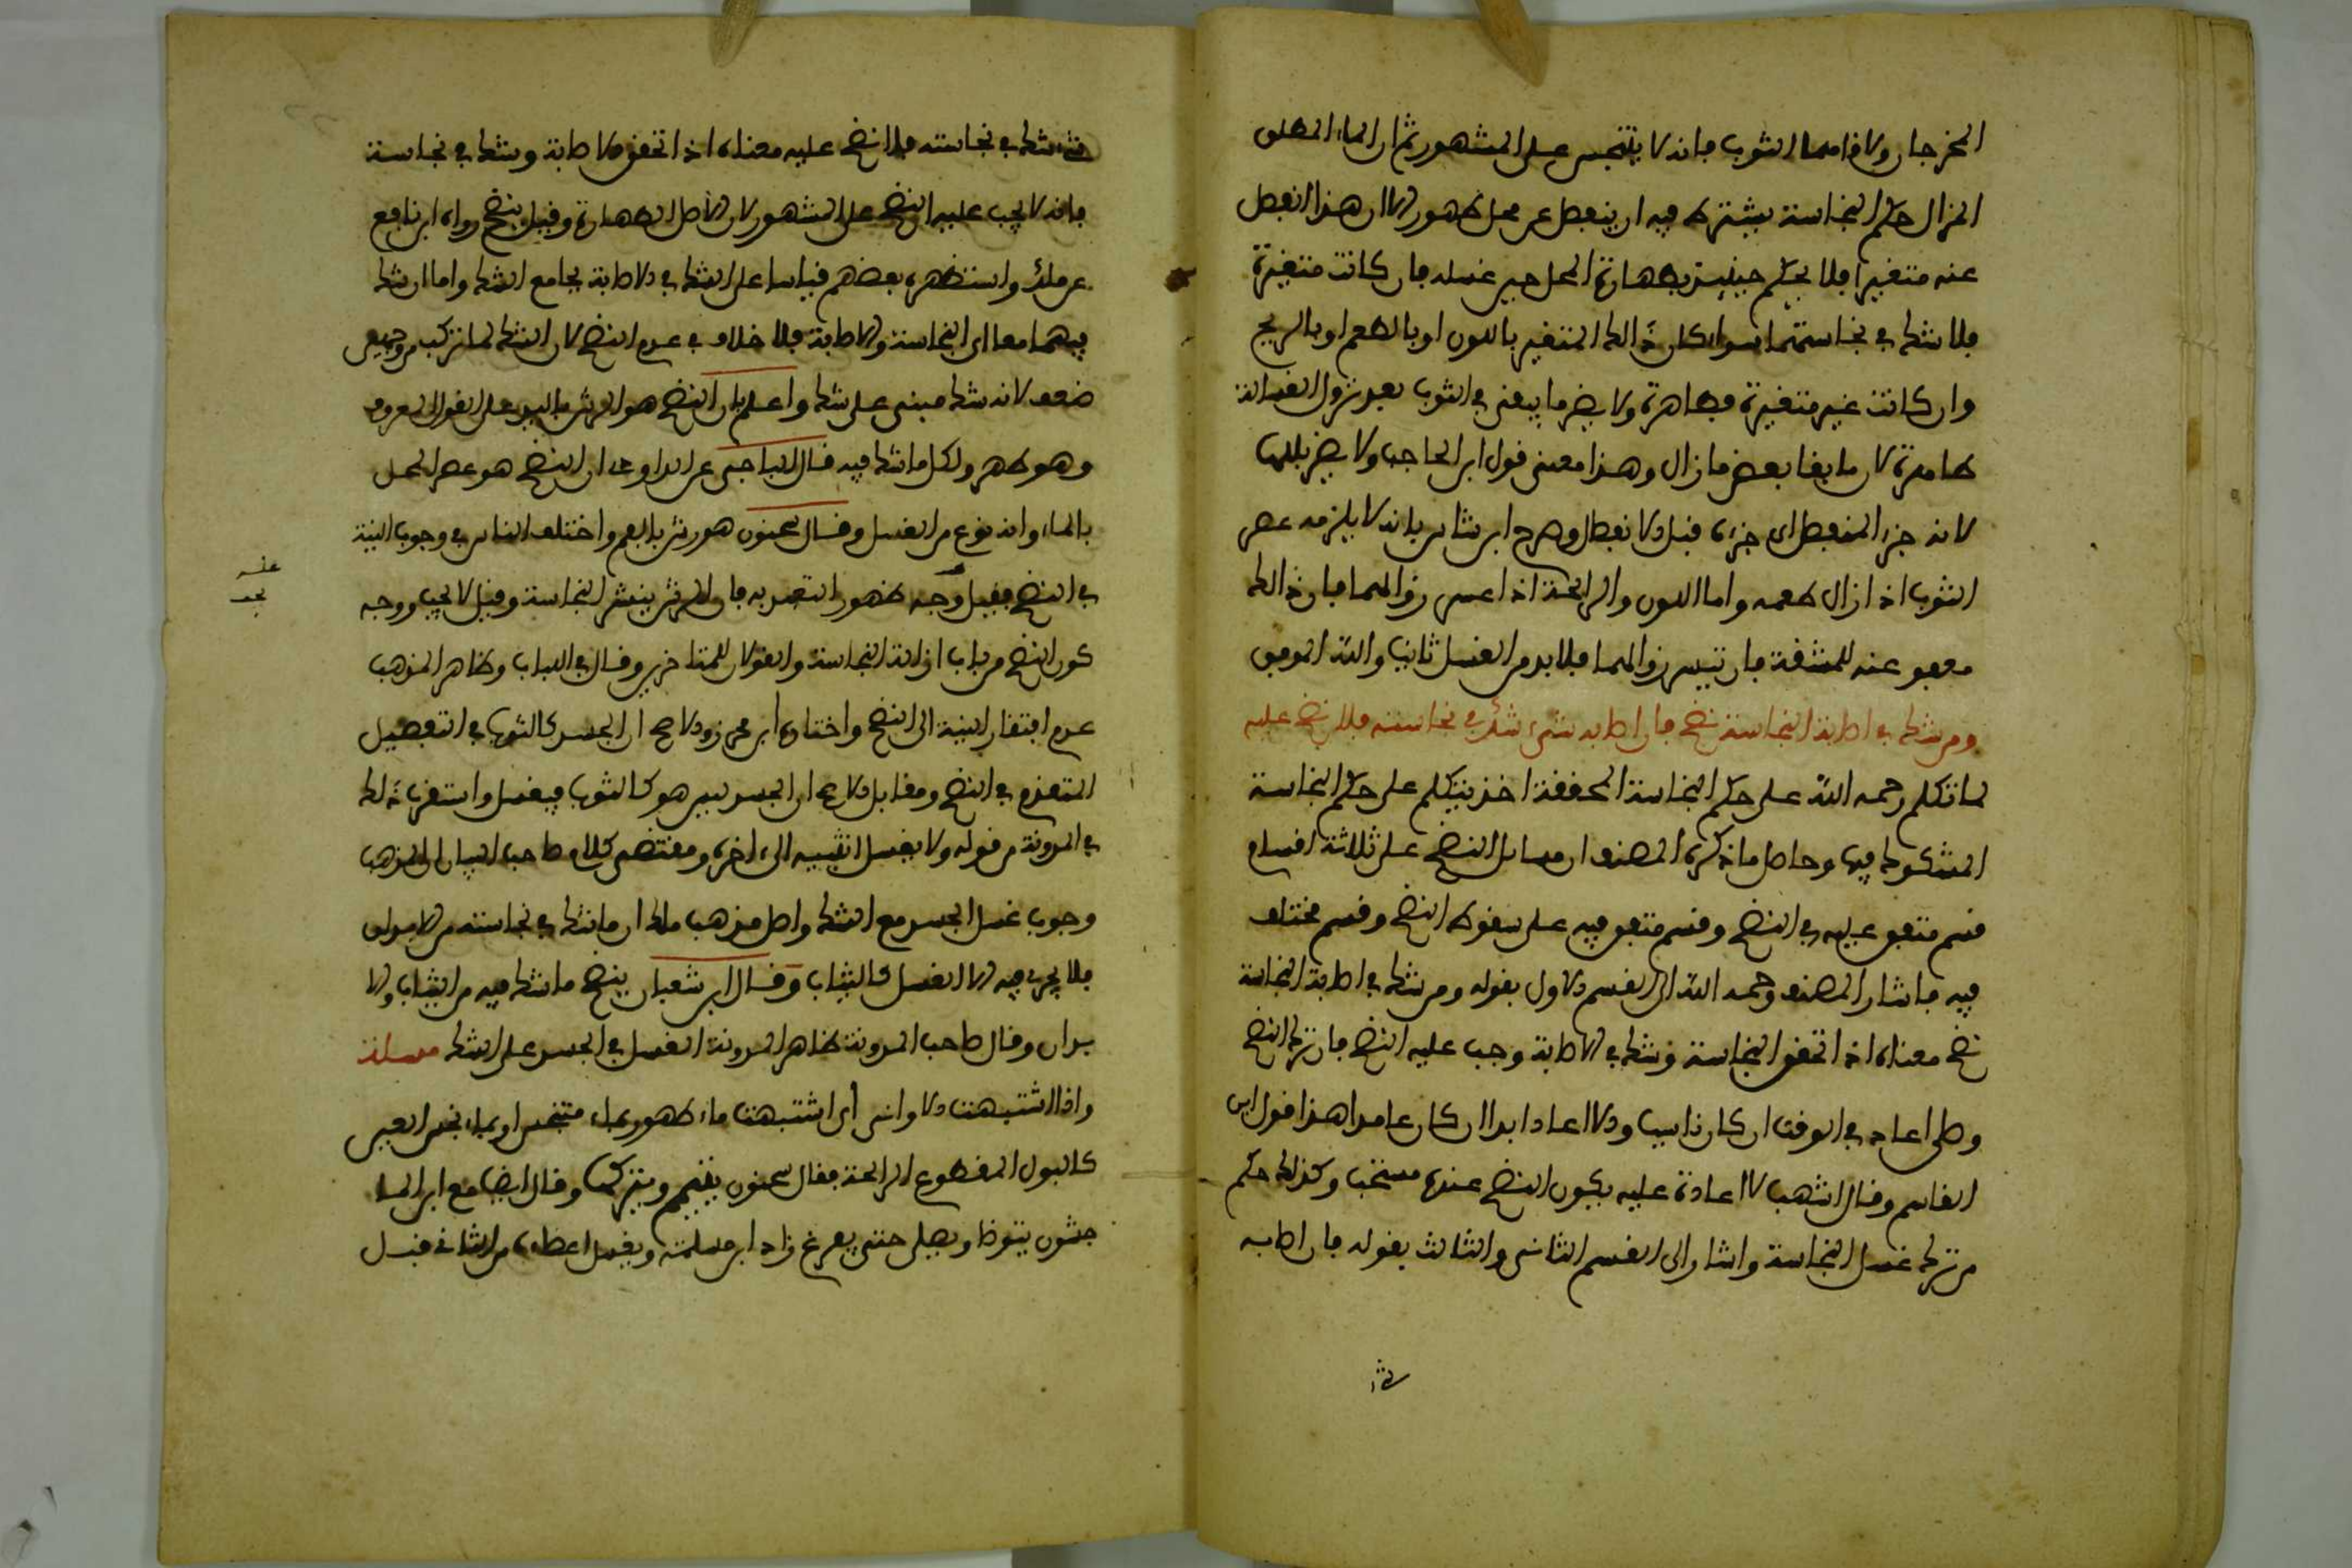 المخرجان ولاقاهما الثوب فانه لا يتنجس على المشهور ثم ان الماء المطلق
المزال حكم النجاسة يشترط فيه ان ينفصل عن محل طهور والا ان هذا انفصل
عنه متغيرا فلا يحكم حينئذ بطهارة المحل حين غسله فان كانت متغيرة
فلا شك في نجاستهما سواء كان ذالك المتغير باللون او بالطعم او بالريح
وان كانت غير متغيرة فطاهرة ولا يضر ما يبقى في الثوب بعد نزول الغسالة
طاهرة لان ما بقا بعض ما زال وهذا معنى قول ابن الحاجب ولا يضر بللها
لانه جزء المنفصل اي جزءه قبل الانفصال وصرح ابن شاس بانه لا يلزمه عصر
الثوب اذا زال طعمه واما اللون والرائحة اذا عسر زوالهما فان ذالك
معفو عنه للمشقة فان تيسر زوالهما فلا بد من الغسل ثانيا والله الموفق
ومن شك في اصابة النجاسة نضح فان اصابه شيء شك في نجاسته فلا نضح عليه
لما تكلم رحمه الله على حكم النجاسة المحققة اخذ يتكلم على حكم النجاسة
المشكوك فيها وحاصل ما ذكره المصنف ان مسائل النضح على ثلاثة اقسام
قسم متفق عليه في النضح وقسم متفق فيه على سقوط النضح وقسم مختلف
فيه فاشار المصنف رحمه الله الى القسم الاول بقوله ومن شك في اصابة النجاسة
نضح معناه اذا تحقق النجاسة وشك في الاصابة وجب عليه النضح فان ترك النضح
وصلى اعاد في الوقت ان كان ناسيا والا اعاد ابدا ان كان عامدا هذا قول ابن
القاسم وقال اشهب لا اعادة عليه يكون النضح عنده مستحب وكذلك حكم
من ترك غسل النجاسة واشار الى القسم الثاني والثالث بقوله فان اصابه
شيء شك في نجاسته فلا نضح عليه معناه اذا تحقق الاصابة وشك في نجاسة
فانه لا يجب عليه النضح على المشهور لان الاصل الطهارة وقيل ينضح رواه ابن نافع
عن ملك واستظهره بعضهم قياسا على الشك في الاصابة بجامع الشك واما ان شك
فيهما معا اي النجاسة والاصابة فلا خلاف في عدم النضح لان الشك لما تركب من وجهين
ضعف لانه شك مبني على شك واعلم بان النضح هو الرش باليد على القول المعروف
وهو طهر ولكل ما شك فيه قال الباجي عن الداودي ان النضح هو غمر المحل
بالماء وانه نوع من الغسل وقال سحنون هو رش بالفم واختلف الناس في وجوب النية
في النضح فقيل وجه ظهور التعبد به فان الرش ينشر النجاسة وقيل لا يجب ووجه
كون النضح من باب ازالة النجاسة والقولان للمتاخرين وقال في اللباب وظاهر المذهب
عدم افتقار النية الى النضح واختاره ابن محرز والاصح ان الجسد كالثوب في التفصيل
المتقدم في النضح ومقابل الاصح ان الجسد ليس هو كالثوب فيغسل واستقرئ ذلك
في المدونة من قوله ولا يغسل انثييه الى اخره ومقتضى كلام صاحب البيان ان المذهب
وجوب غسل الجسد مع الشك واصل مذهب ملك ان ما شك في نجاسته من الابدان
فلا يجزئ فيه الا الغسل كالثياب وقال ابن شعبان ينضح ما شك فيه من الثياب والا
بدان وقال صاحب المدونة ظاهر المدونة الغسل في الجسد على الشك مسالة
واذا اشتبهت الاواني أي اشتبهت ماء طهور بماء متنجس او بماء نجس العين
كالبول المقطوع الرائحة فقال سحنون يتيمم ويتركها وقال ايضا مع ابن الما
جشون يتوضا ويصلي حتى يفرغ زاد ابن مسلمة ويغسل اعضاءه من الثاني قبل